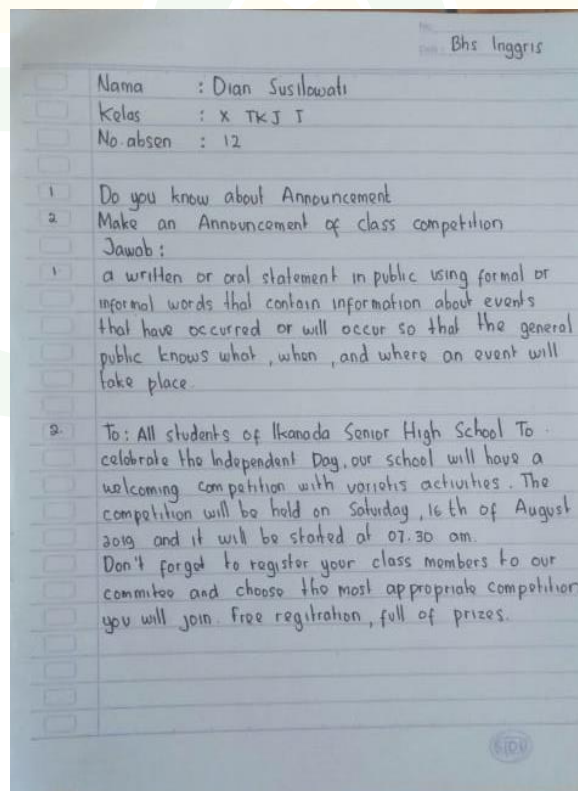 Bhs Inggris
Nama : Dian Susilowati
Kelas : X TKJ I
No.absen : 12
1 Do you know about Announcement
2 Make an Announcement of class competition
Jawab :
1 a written or oral statement in public using formal or
informal words that contain information about events
that have occurred or will occur so that the general
public knows what, when, and where an event will
take place.
2. To: All students of Ikanada Senior High School To
celebrate the Independent Day, our school will have a
welcoming competition with varietis activities. The
competition will be held on Saturday, 16 th of August
2019 and it will be started at 07.30 am.
Don't forget to register your class members to our
commitee and choose the most appropriate competition
you will join. Free regitration, full of prizes.